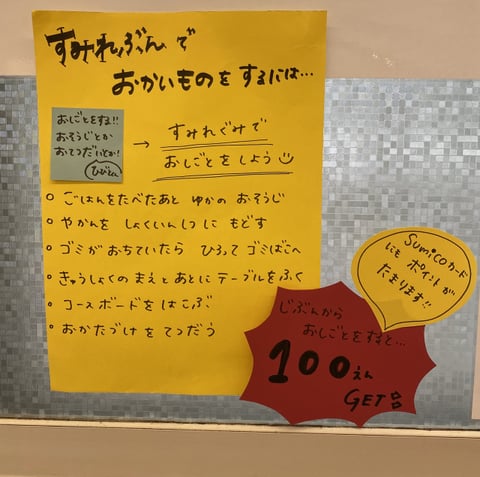 すみれぶんで
おかいものを するには…
おしごとをする!!
おそうじとか
おてつだいとか!
→ すみれぐみで
おしごとをしよう
ごはんをたべたあと ゆかの おそうじ
やかんを しょくいんしつ に もどす
ゴミが おちていたら ひろって ゴミばこへ
きゅうしょくの まえと あとに テーブルを ふく
コースボードを はこぶ
おかたづけ を てつだう
Sumicoカード
にも ポイントが
たまります!!
じぶんから
おしごとをすると…
100えん
GET